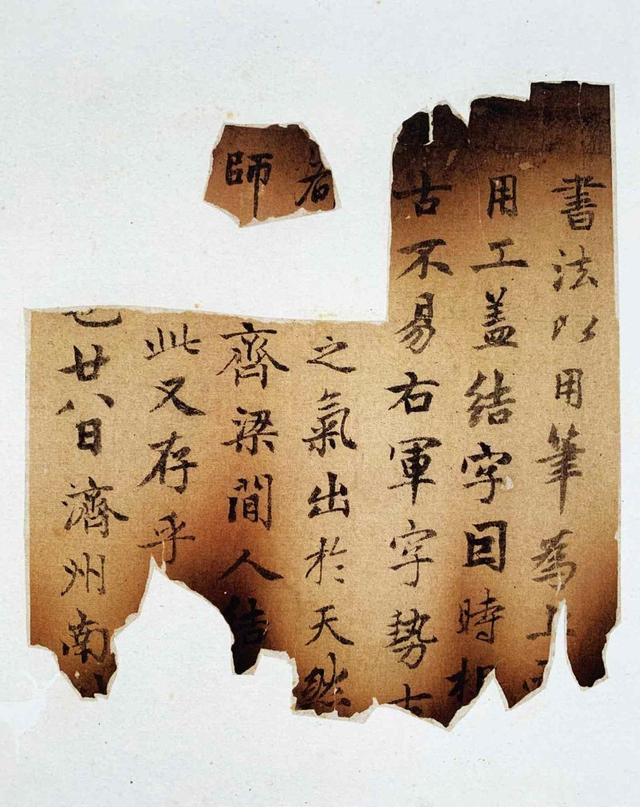 書法以用筆為上而
用工盖結字囙時相
古不易右軍字勢古
者之氣出扵天然
師齊梁間人結
此又存乎
廿八日濟州南